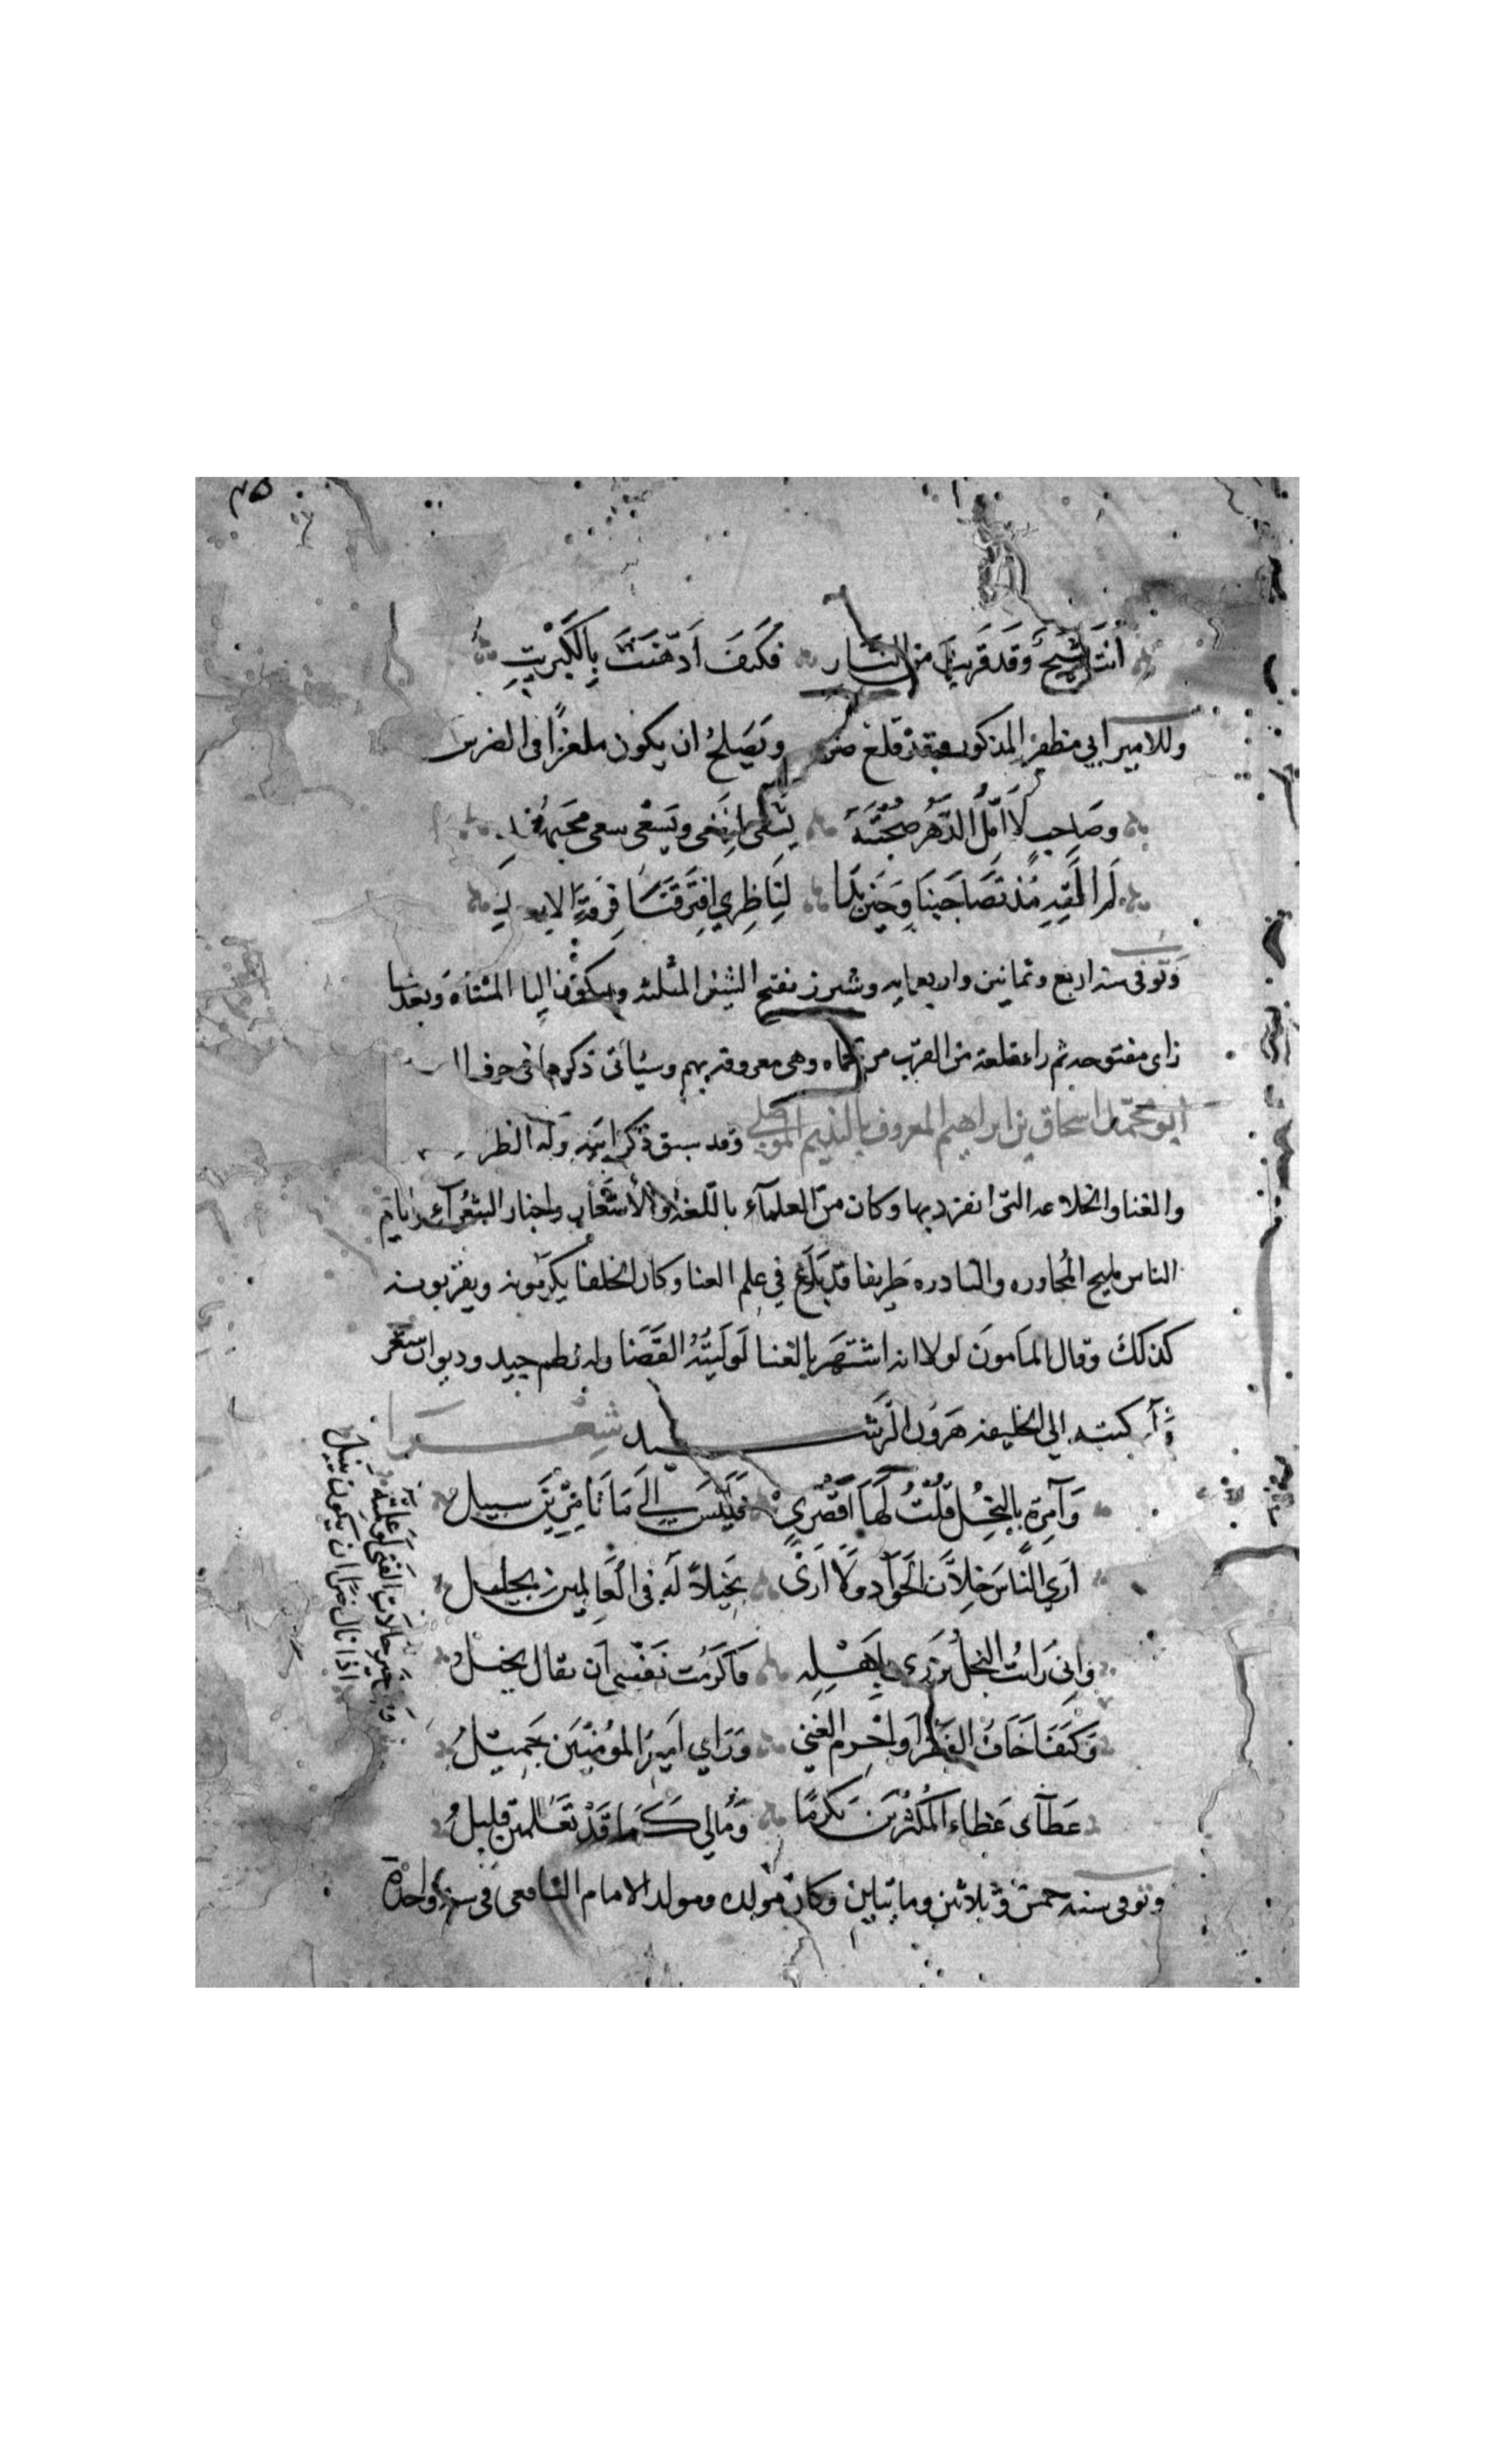 ٣٥
أنت شيخ وقد قربت من النار فكيف أدّهنت بالكبريت
وللامير ابي مظفر المذكور وقد قلع ضرسه ويصلح ان يكون ملغزا في الضرس
وصاحب لا أمل الدهر صحبته يشقى لنفعي ويسعى سعي مجتهد
لم القه مذ تصاحبنا وحين بدا لناظري افترقنا فرقة الابد
وتوفي سنة اربع وثمانين واربعمايه وشيزر بفتح الشين المثلثه وسكون اليا المثناه وبعدها
زاي مفتوحه ثم راء قلعة من القرب من حماه وهي معروفة بهم وسيأتي ذكرها في حرف
ابو محمد اسحاق بن ابراهيم المعروف بالنديم الموصلي وقد سبق ذكر ابيه وله الظر
والغنا والخلاعه التي انفرد بها وكان من العلمآء باللغة والأشعار واخبار الشعرآء وايام
الناس مليح المحاوره والنادره ظريفا قد بلغ في علم الغنا وكان الخلفا يكرمونه ويقربونه
كذلك وقال المامون لولا انه اشتهر بالغنا لوليته القضا وله نظم جيد وديوان شعر
كتبه الي الخليفه هرون الرشيد شعرا
وآمرة بالبخل قلت لها اقصري فليس الى ما تامرين سبيل
اري الناس خلان الجوآد ولا ارى بخيلا له في العالمين خليل
واني رايت البخل يزري باهله فاكرمت نفسي ان يقال بخيل
ومن خير حالات الفتى لو علمته
اذا نال خيرا ان يكون ينيل
وكيف اخاف الفقر او احرم الغني وراي امير المؤمنين جميل
عطآئ عطاء المكثرين تكرما ومالي كما قد تعلمين قليل
وتوفى سنة خمس وثلاثين وماتيان وكان مولده ومولد الامام الشافعي في سنة واحدة